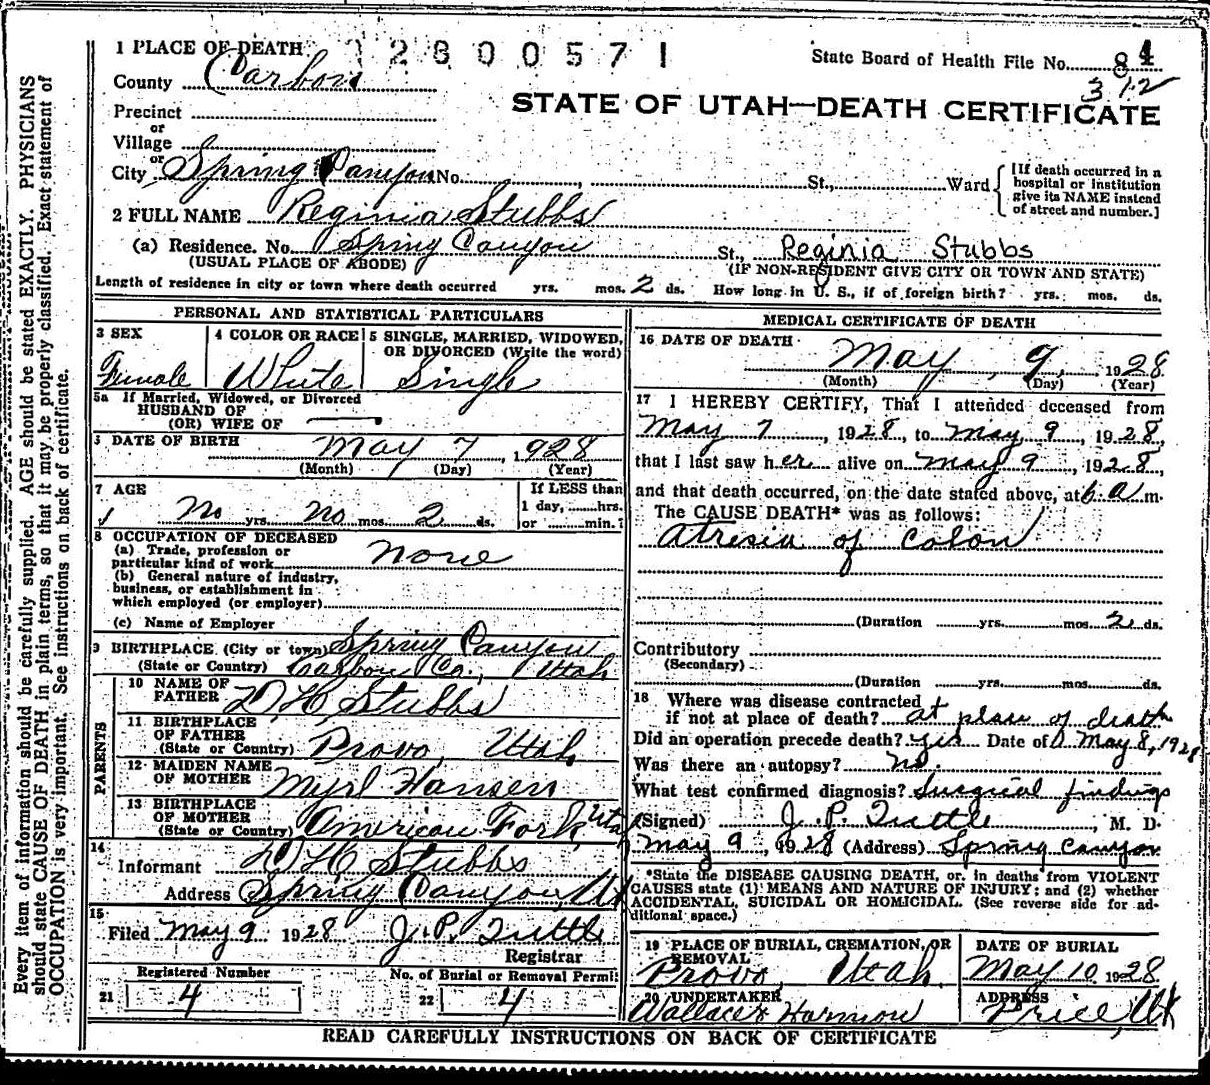 Every item of information should be carefully supplied. AGE should be stated EXACTLY. PHYSICIANS
should state CAUSE OF DEATH in plain terms, so that it may be properly classified. Exact statement of
OCCUPATION is very important. See instructions on back of certificate.
1 PLACE OF DEATH 2800571
State Board of Health File No. 84
County Carbon
312
STATE OF UTAH—DEATH CERTIFICATE
Precinct
or
Village
or
City Spring Canyon No. , St., Ward
[If death occurred in a
hospital or institution
give its NAME instead
of street and number.]
2 FULL NAME Reginia Stubbs
(a) Residence. No. Spring Canyon St., Reginia Stubbs
(USUAL PLACE OF ABODE) (IF NON-RESIDENT GIVE CITY OR TOWN AND STATE)
Length of residence in city or town where death occurred yrs. mos. 2 ds. How long in U. S., if of foreign birth? yrs. mos. ds.
PERSONAL AND STATISTICAL PARTICULARS
3 SEX
Female
4 COLOR OR RACE
White
5 SINGLE, MARRIED, WIDOWED,
OR DIVORCED (Write the word)
Single
5a If Married, Widowed, or Divorced
HUSBAND OF
(OR) WIFE OF
6 DATE OF BIRTH May 7, 1928
(Month) (Day) (Year)
7 AGE
No yrs. No mos. 2 ds.
If LESS than
1 day, hrs.
or min.?
8 OCCUPATION OF DECEASED
(a) Trade, profession or
particular kind of work none
(b) General nature of industry,
business, or establishment in
which employed (or employer)
(c) Name of Employer
9 BIRTHPLACE (City or town) Spring Canyon
(State or Country) Carbon Co., Utah
PARENTS
10 NAME OF
FATHER D H Stubbs
11 BIRTHPLACE
OF FATHER
(State or Country) Provo, Utah
12 MAIDEN NAME
OF MOTHER Myrl Hansen
13 BIRTHPLACE
OF MOTHER
(State or Country) American Fork, Utah
14
Informant D H Stubbs
Address Spring Canyon, Ut
15
Filed May 9 1928 J. P. Tuttle
Registrar
Registered Number
21 4
No. of Burial or Removal Permit
22 4
MEDICAL CERTIFICATE OF DEATH
16 DATE OF DEATH
May, 9, 1928
(Month) (Day) (Year)
17 I HEREBY CERTIFY, That I attended deceased from
May 7, 1928, to May 9, 1928,
that I last saw her alive on May 9, 1928,
and that death occurred, on the date stated above, at 6 a m.
The CAUSE DEATH* was as follows:
Atresia of Colon
(Duration yrs. mos. 2 ds.
Contributory
(Secondary)
(Duration yrs. mos. ds.
18 Where was disease contracted
if not at place of death? at place of death
Did an operation precede death? yes Date of May 8, 1928
Was there an autopsy? no.
What test confirmed diagnosis? Surgical findings
(Signed) J. P. Tuttle, M. D.
May 9, 1928 (Address) Spring Canyon
*State the DISEASE CAUSING DEATH, or in deaths from VIOLENT
CAUSES state (1) MEANS AND NATURE OF INJURY; and (2) whether
ACCIDENTAL, SUICIDAL OR HOMICIDAL. (See reverse side for ad-
ditional space.)
19 PLACE OF BURIAL, CREMATION, OR
REMOVAL
Provo, Utah.
DATE OF BURIAL
May 10 1928
20 UNDERTAKER
Wallace & Harmon
ADDRESS
Price, Ut
READ CAREFULLY INSTRUCTIONS ON BACK OF CERTIFICATE